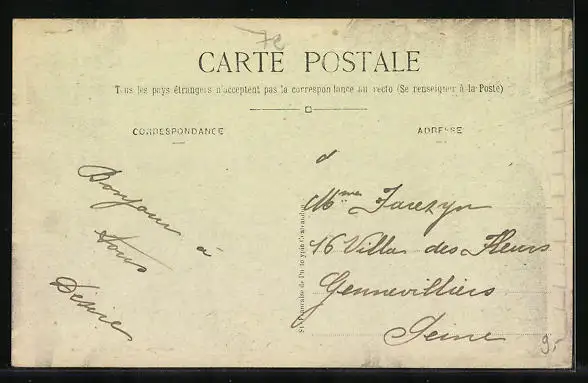 CARTE POSTALE
Tous les pays étrangers n'acceptent pas la correspondance au recto (Se renseigner à la Poste)
CORRESPONDANCE
ADRESSE
Bonjour
à
tous
Désiré
à
16 Villa des Fleurs
Gennevilliers
Seine
9.-